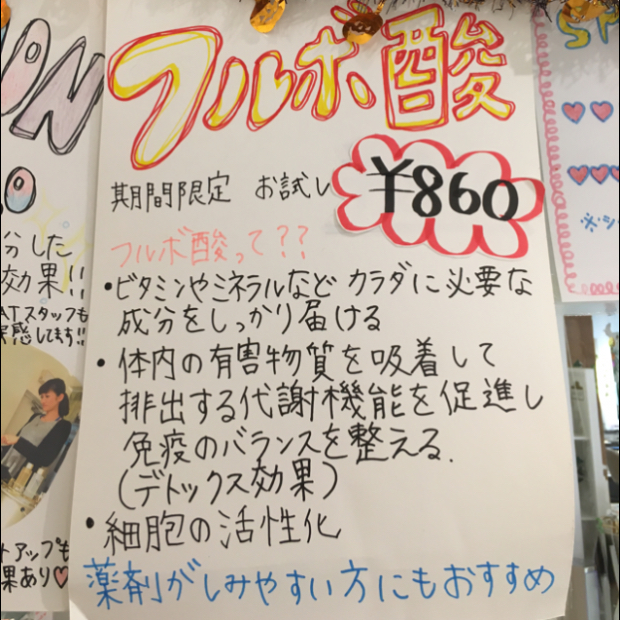 フルボ酸
期間限定 お試し ¥860
フルボ酸って??
・ビタミンやミネラルなど カラダに必要な
成分をしっかり届ける
・体内の有害物質を吸着して
排出する代謝機能を促進し
免疫のバランスを整える.
(デトックス効果)
・細胞の活性化
薬剤がしみやすい方にもおすすめ
ION
した
効果!!
ATスタッフも
感してます!!
トアップも
果あり♡
SP